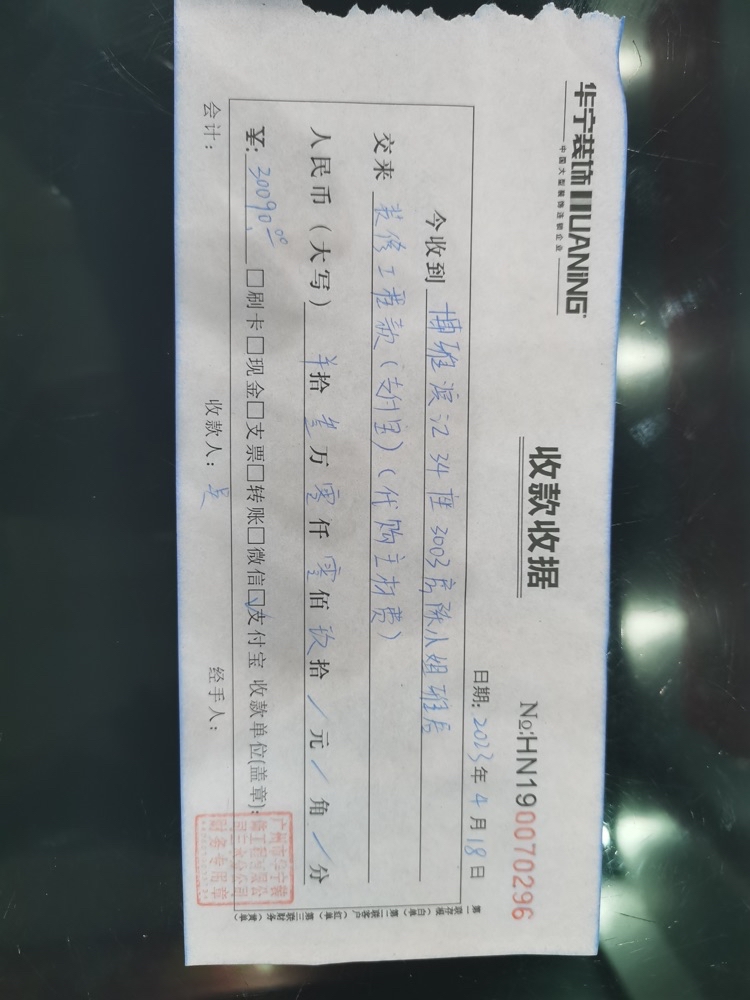 华宁装饰 HUANING
中国大型装饰连锁企业
收款收据
№:HN190070296
日期: 2023年4月18日
今收到 博雅滨江34座3003房陈小姐雅居
交来 装修工程款(支付宝)(代购主材费)
人民币(大写) 拾叁万零仟零佰玖拾/元/角/分
¥: 30090.00 □刷卡□现金□支票□转账□微信☑支付宝 收款单位(盖章):
会计: 收款人: 经手人:
第一联存根(白单) 第二联客户(红单) 第三联财务(黄单)
广州市华宁装
财务专用章